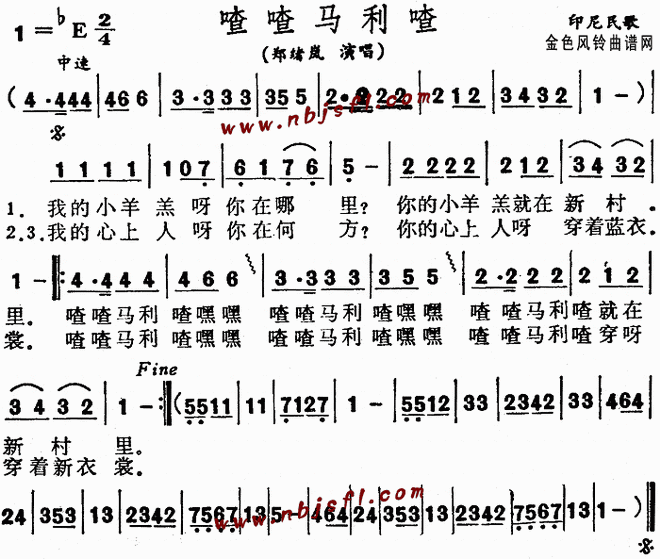 喳喳马利喳
1=♭E 2/4
印尼民歌
(郑绪岚 演唱)
金色风铃曲谱网
中速
(4·444|466|3·333|355|2·222|212|3432|1-)|
www.nbjsfl.com
1111|107|6176|5-|2222|212|3432|
1. 我的小羊羔呀你在哪里？你的小羊羔就在新村.
2.3.我的心上人呀你在何方？你的心上人呀穿着蓝衣.
1-|:4·444|466|3·333|355|2·222|212|
里. 喳喳马利喳嘿嘿 喳喳马利喳嘿嘿 喳喳马利喳就在
裳. 喳喳马利喳嘿嘿 喳喳马利喳嘿嘿 喳喳马利喳穿呀
Fine
3432|1-:|(5511|11|7127|1-|5512|33|2342|33|464|
新村里.
穿着新衣裳.
24|353|13|2342|7567|135|464|24|353|13|2342|7567|13|1-)|
www.nbjsfl.com